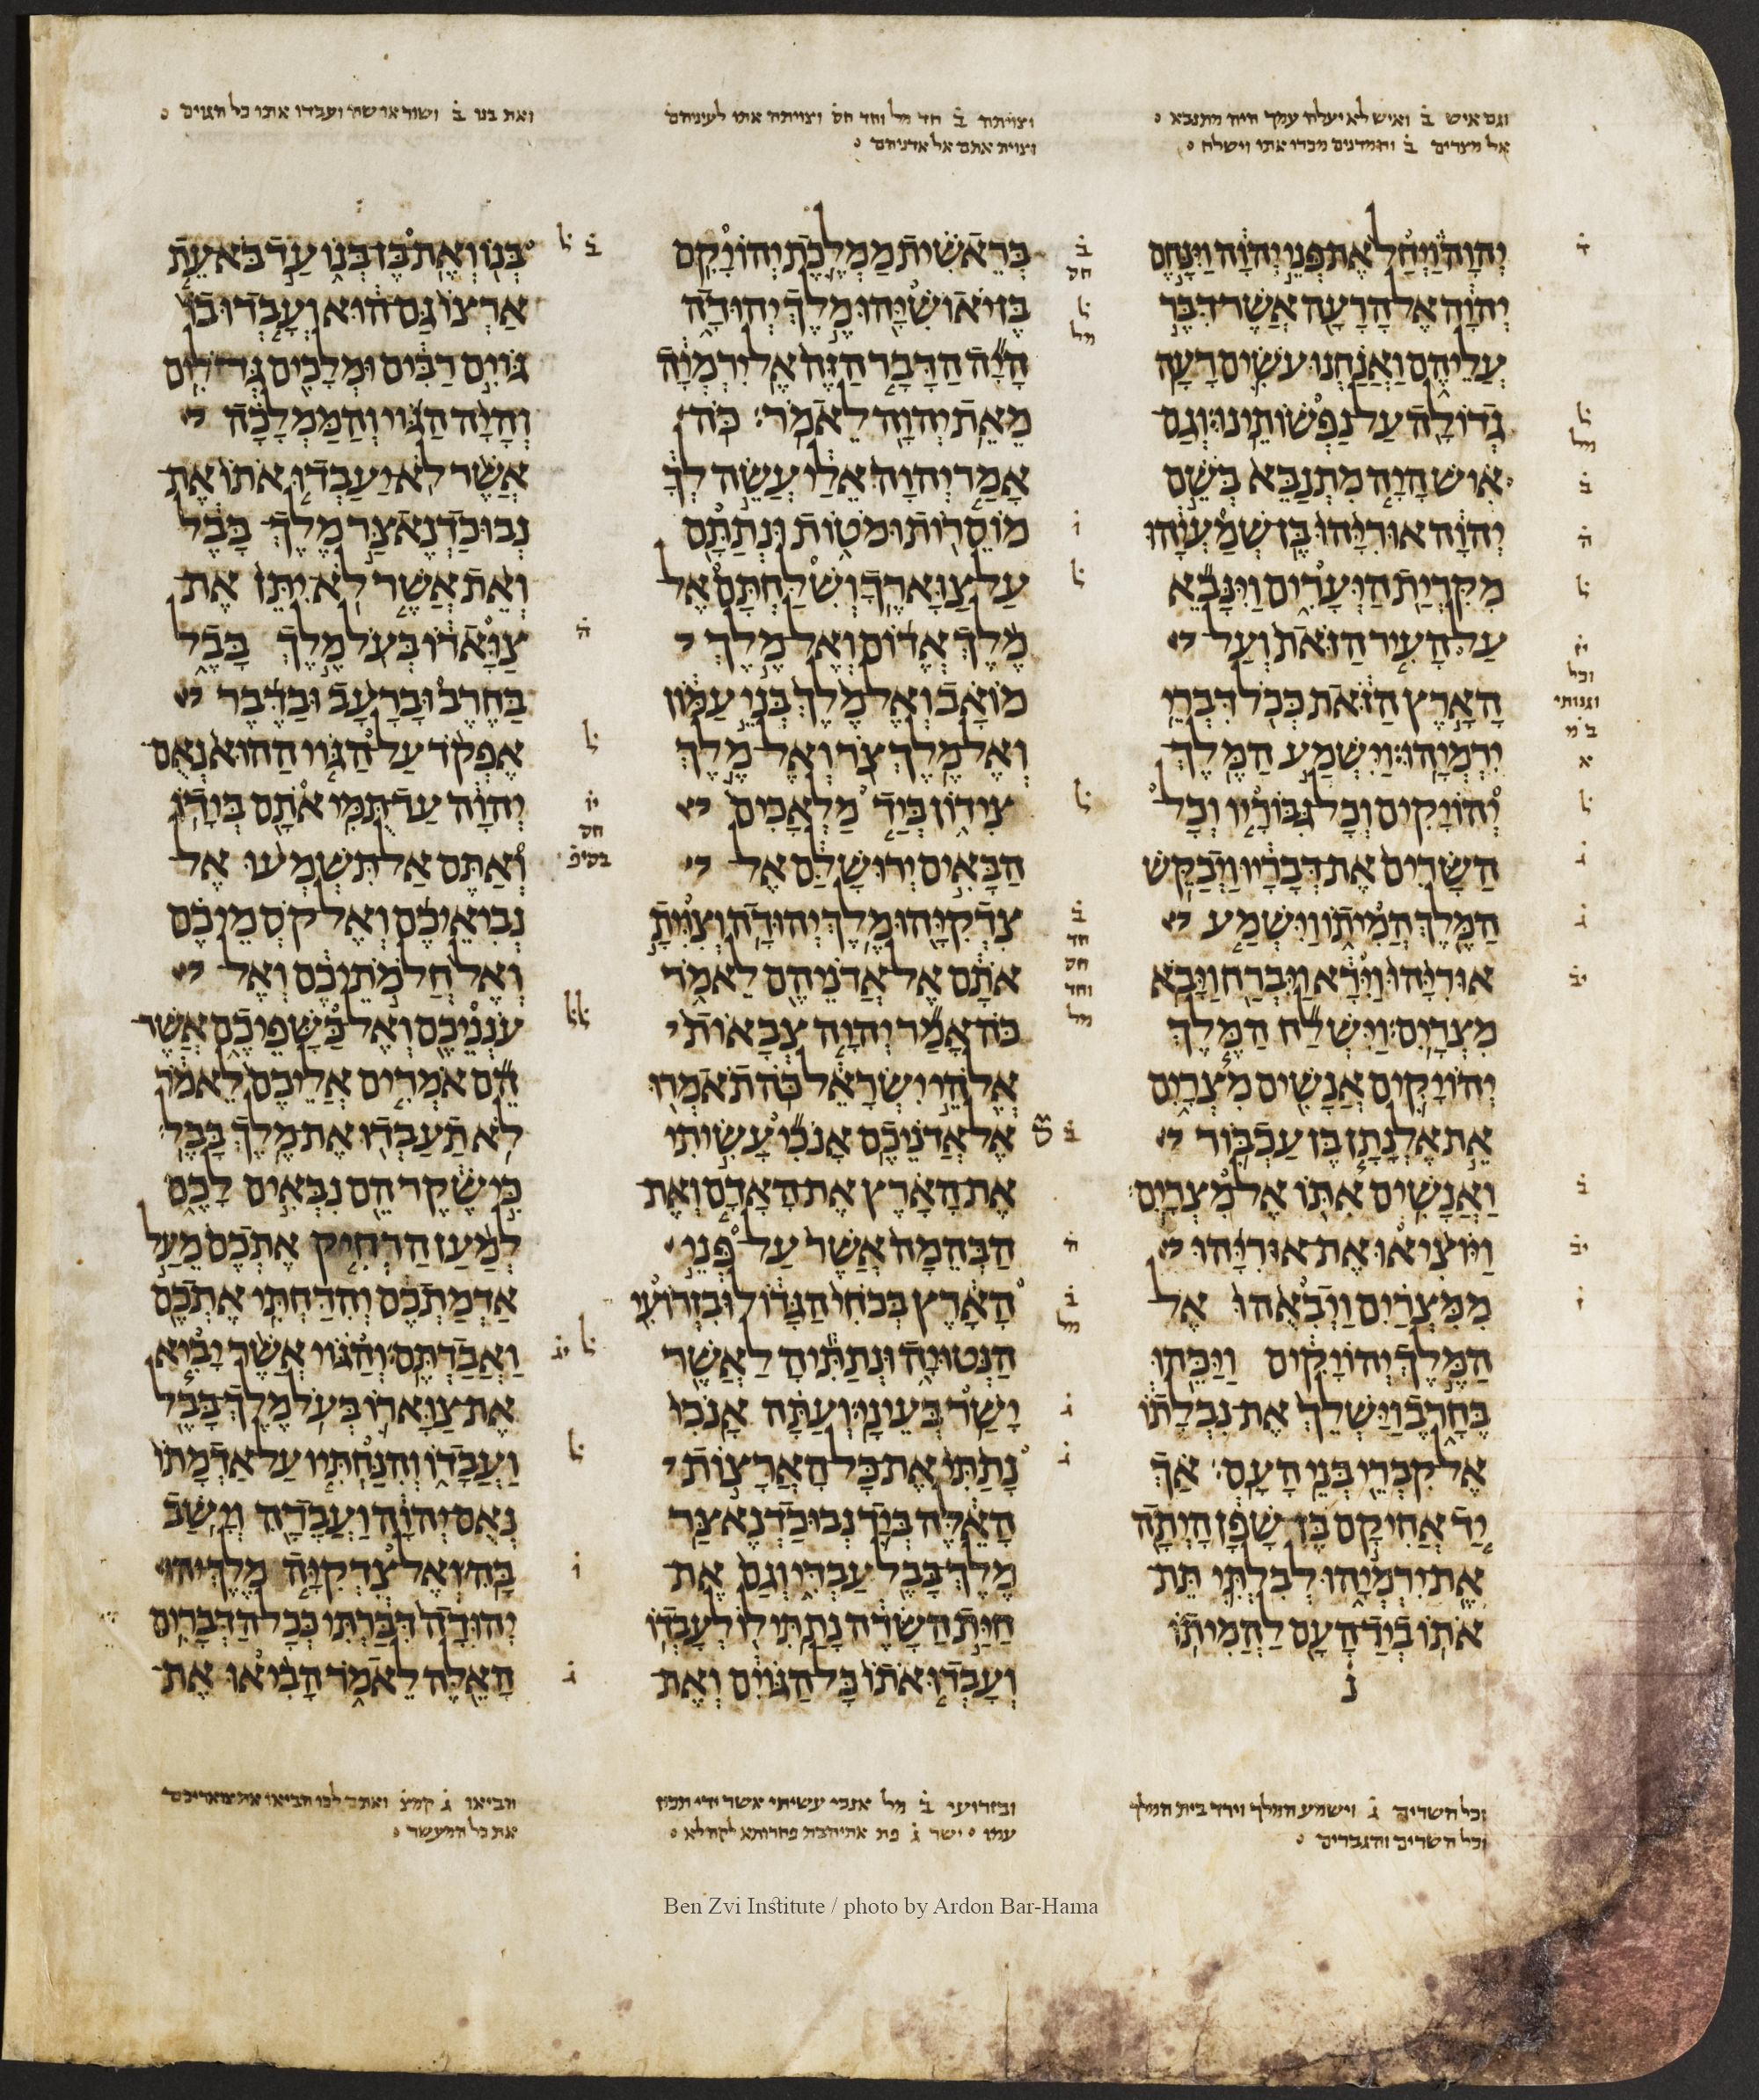 וגם איש ב ואיש לא יעלה עמך היה מתנבא
אל מצרים ב והמדנים מכרו אתו וישלח
וצויתה ב חד מל וחד חס וצויתה אתו לעיניהם
וצוית אתם אל אדניהם
ואת בנו ב ושור או שה ועבדו אתו כל הגוים
יהוה ויחל את פני יהוה וינחם
יהוה אל הרעה אשר דבר
עליהם ואנחנו עשים רעה
גדולה על נפשותינו׃ וגם
איש היה מתנבא בשם
יהוה אוריהו בן שמעיהו
מקרית היערים וינבא
על העיר הזאת ועל
הארץ הזאת ככל דברי
ירמיהו׃ וישמע המלך
יהויקים וכל גבוריו וכל
השרים את דבריו ויבקש
המלך המיתו וישמע
אוריהו וירא ויברח ויבא
מצרים׃ וישלח המלך
יהויקים אנשים מצרים
את אלנתן בן עכבור
ואנשים אתו אל מצרים׃
ויוציאו את אוריהו
ממצרים ויבאהו אל
המלך יהויקים ויכהו
בחרב וישלך את נבלתו
אל קברי בני העם׃ אך
יד אחיקם בן שפן היתה
את ירמיהו לבלתי תת
אתו ביד העם להמיתו
בראשית ממלכת יהויקם
בן יאושיהו מלך יהודה
היה הדבר הזה אל ירמיה
מאת יהוה לאמר׃ כה
אמר יהוה אלי עשה לך
מוסרות ומטות ונתתם
על צוארך׃ ושלחתם אל
מלך אדום ואל מלך
מואב ואל מלך בני עמון
ואל מלך צר ואל מלך
צידון ביד מלאכים
הבאים ירושלם אל
צדקיהו מלך יהודה׃ וצוית
אתם אל אדניהם לאמר
כה אמר יהוה צבאות
אלהי ישראל כה תאמרו
אל אדניכם׃ אנכי עשיתי
את הארץ את האדם ואת
הבהמה אשר על פני
הארץ בכחי הגדול ובזרועי
הנטויה ונתתיה לאשר
ישר בעיני׃ ועתה אנכי
נתתי את כל הארצות
האלה ביד נבוכדנאצר
מלך בבל עבדי וגם את
חית השדה נתתי לו לעבדו
ועבדו אתו כל הגוים ואת
בנו ואת בן בנו עד בא עת
ארצו גם הוא ועבדו בו
גוים רבים ומלכים גדלים
והיה הגוי והממלכה
אשר לא יעבדו אתו את
נבוכדנאצר מלך בבל
ואת אשר לא יתן את
צוארו בעל מלך בבל
בחרב וברעב ובדבר
אפקד על הגוי ההוא נאם
יהוה עד תמי אתם בידו׃
ואתם אל תשמעו אל
נביאיכם ואל קסמיכם
ואל חלמתיכם ואל
ענניכם ואל כשפיכם אשר
הם אמרים אליכם לאמר
לא תעבדו את מלך בבל׃
כי שקר הם נבאים לכם
למען הרחיק אתכם מעל
אדמתכם והדחתי אתכם
ואבדתם׃ והגוי אשר יביא
את צוארו בעל מלך בבל
ועבדו והנחתיו על אדמתו
נאם יהוה ועבדה וישב
בה׃ ואל צדקיה מלך
יהודה דברתי ככל הדברים
האלה לאמר הביאו את
וכל השרים ג וישמע המלך וירד בית המלך
וכל השרים והגברים
ובזרועי ב מל אנכי עשיתי אשר ידי תכון
עמו
הביאו ג קמצ
את כל המעשר
Ben Zvi Institute / photo by Ardon Bar-Hama